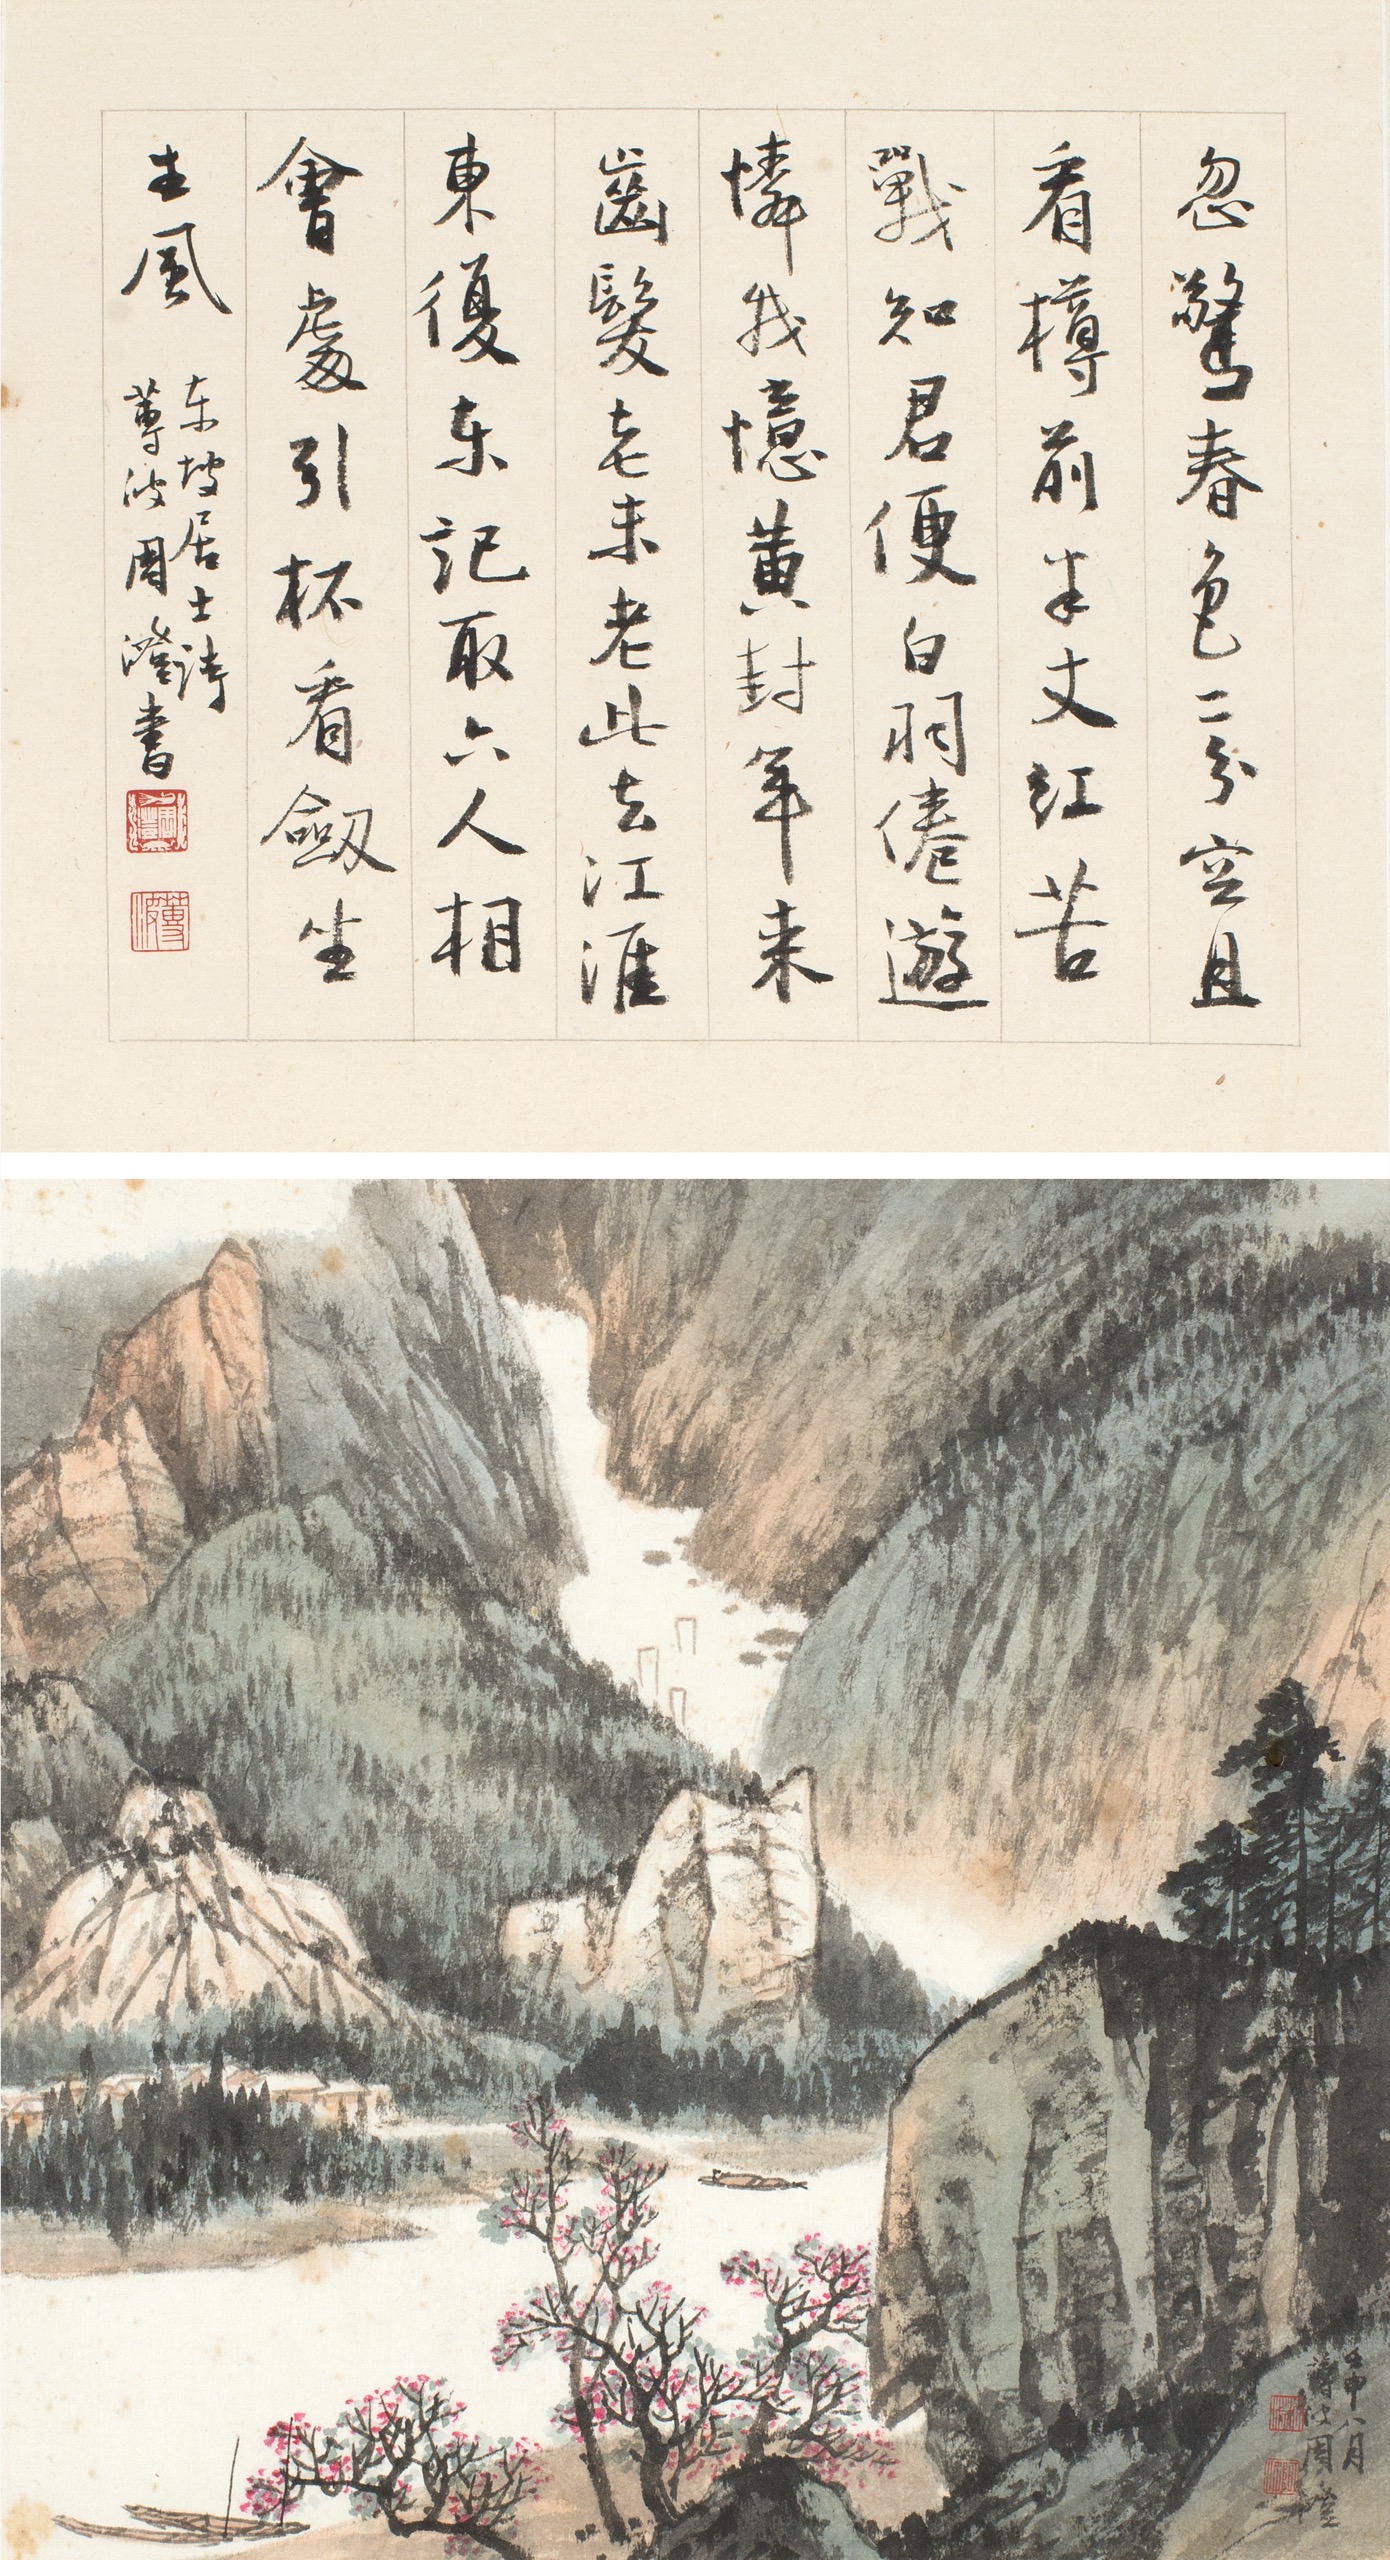 忽驚春色二分空且
看樽前半丈紅苦
戰知君便白羽倦遊
憐我憶黃封年來
齒髮老未老此去江淮
東復东記取六人相
會處引杯看劒坐
生風
东坡居士詩
蓴波周澄書
蓴波
壬申八月
蓴波周澄